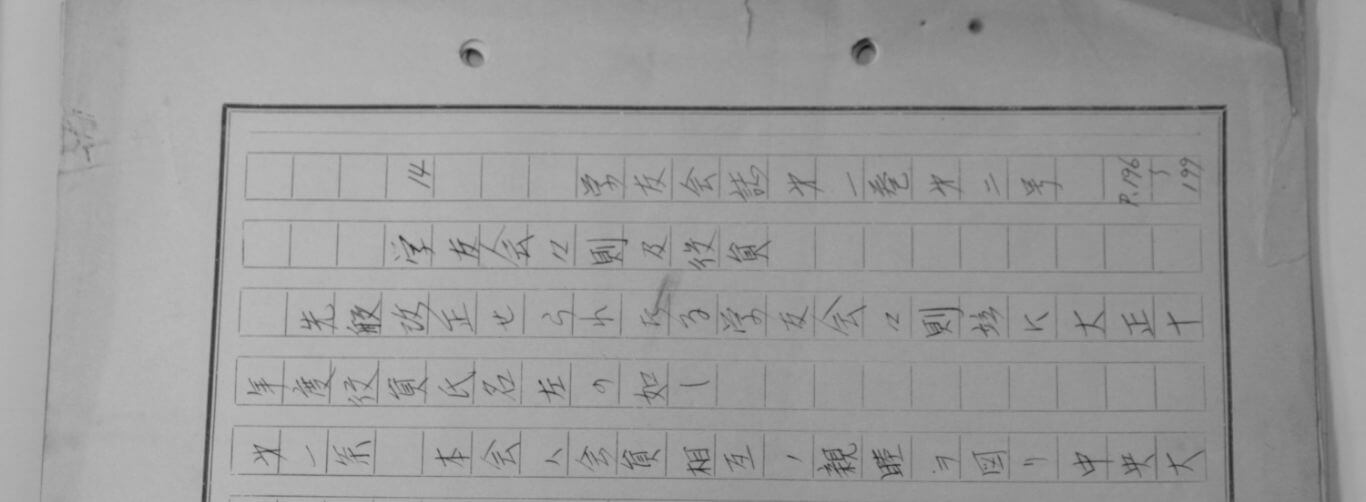 14 学友会誌才一巻才二号 P.196〜199
学友会々則及役員
先般改正せられたる学友会々則竝に大正十
年度役員氏名左の如し
才一条 本会ハ会員相互ノ親睦ヲ図リ中央大